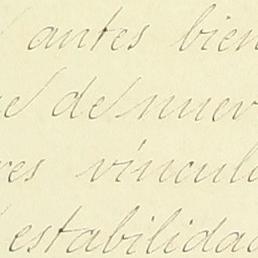 antes bien
de nuev
res víncul
estabilidad